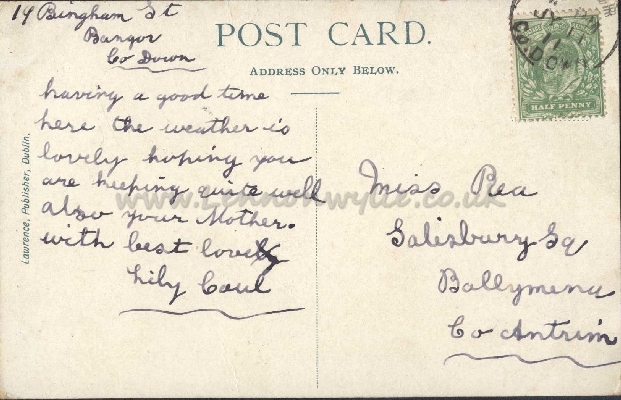 14 Bingham St
Bangor
Co Down
POST CARD.
ADDRESS ONLY BELOW.
having a good time
here the weather is
lovely hoping you
are keeping quite well
also your Mother.
with best love
Lily Caul
Miss Rea
Salisbury Sq
Ballymena
Co Antrim
Laurence, Publisher, Dublin.
HALF PENNY
JY
11
CO. DOWN
www.lennonwylie.co.uk